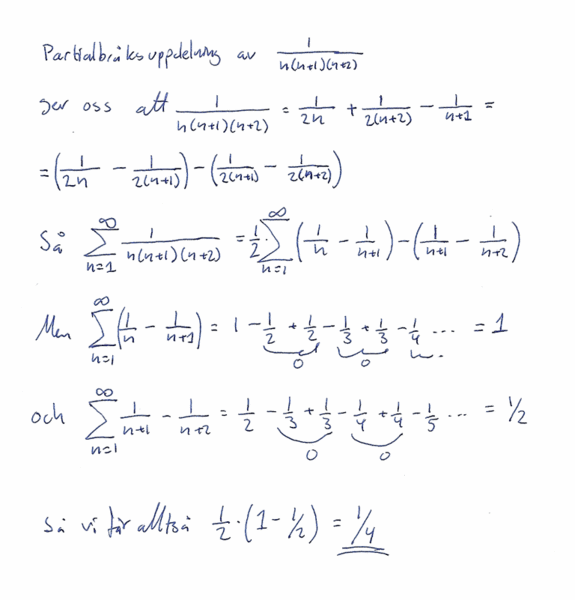 Partialbråksuppdelning av 1/(n(n+1)(n+2))
ger oss att 1/(n(n+1)(n+2)) = 1/(2n) + 1/(2(n+2)) - 1/(n+1) =
= (1/(2n) - 1/(2(n+1))) - (1/(2(n+1)) - 1/(2(n+2)))
Så ∑_{n=1}^{∞} 1/(n(n+1)(n+2)) = 1/2 · ∑_{n=1}^{∞} (1/n - 1/(n+1)) - (1/(n+1) - 1/(n+2))
Men ∑_{n=1}^{∞} (1/n - 1/(n+1)) = 1 - 1/2 + 1/2 - 1/3 + 1/3 - 1/4 ... = 1
0 0
och ∑_{n=1}^{∞} 1/(n+1) - 1/(n+2) = 1/2 - 1/3 + 1/3 - 1/4 + 1/4 - 1/5 ... = 1/2
0 0
Så vi får alltså 1/2 · (1 - 1/2) = 1/4